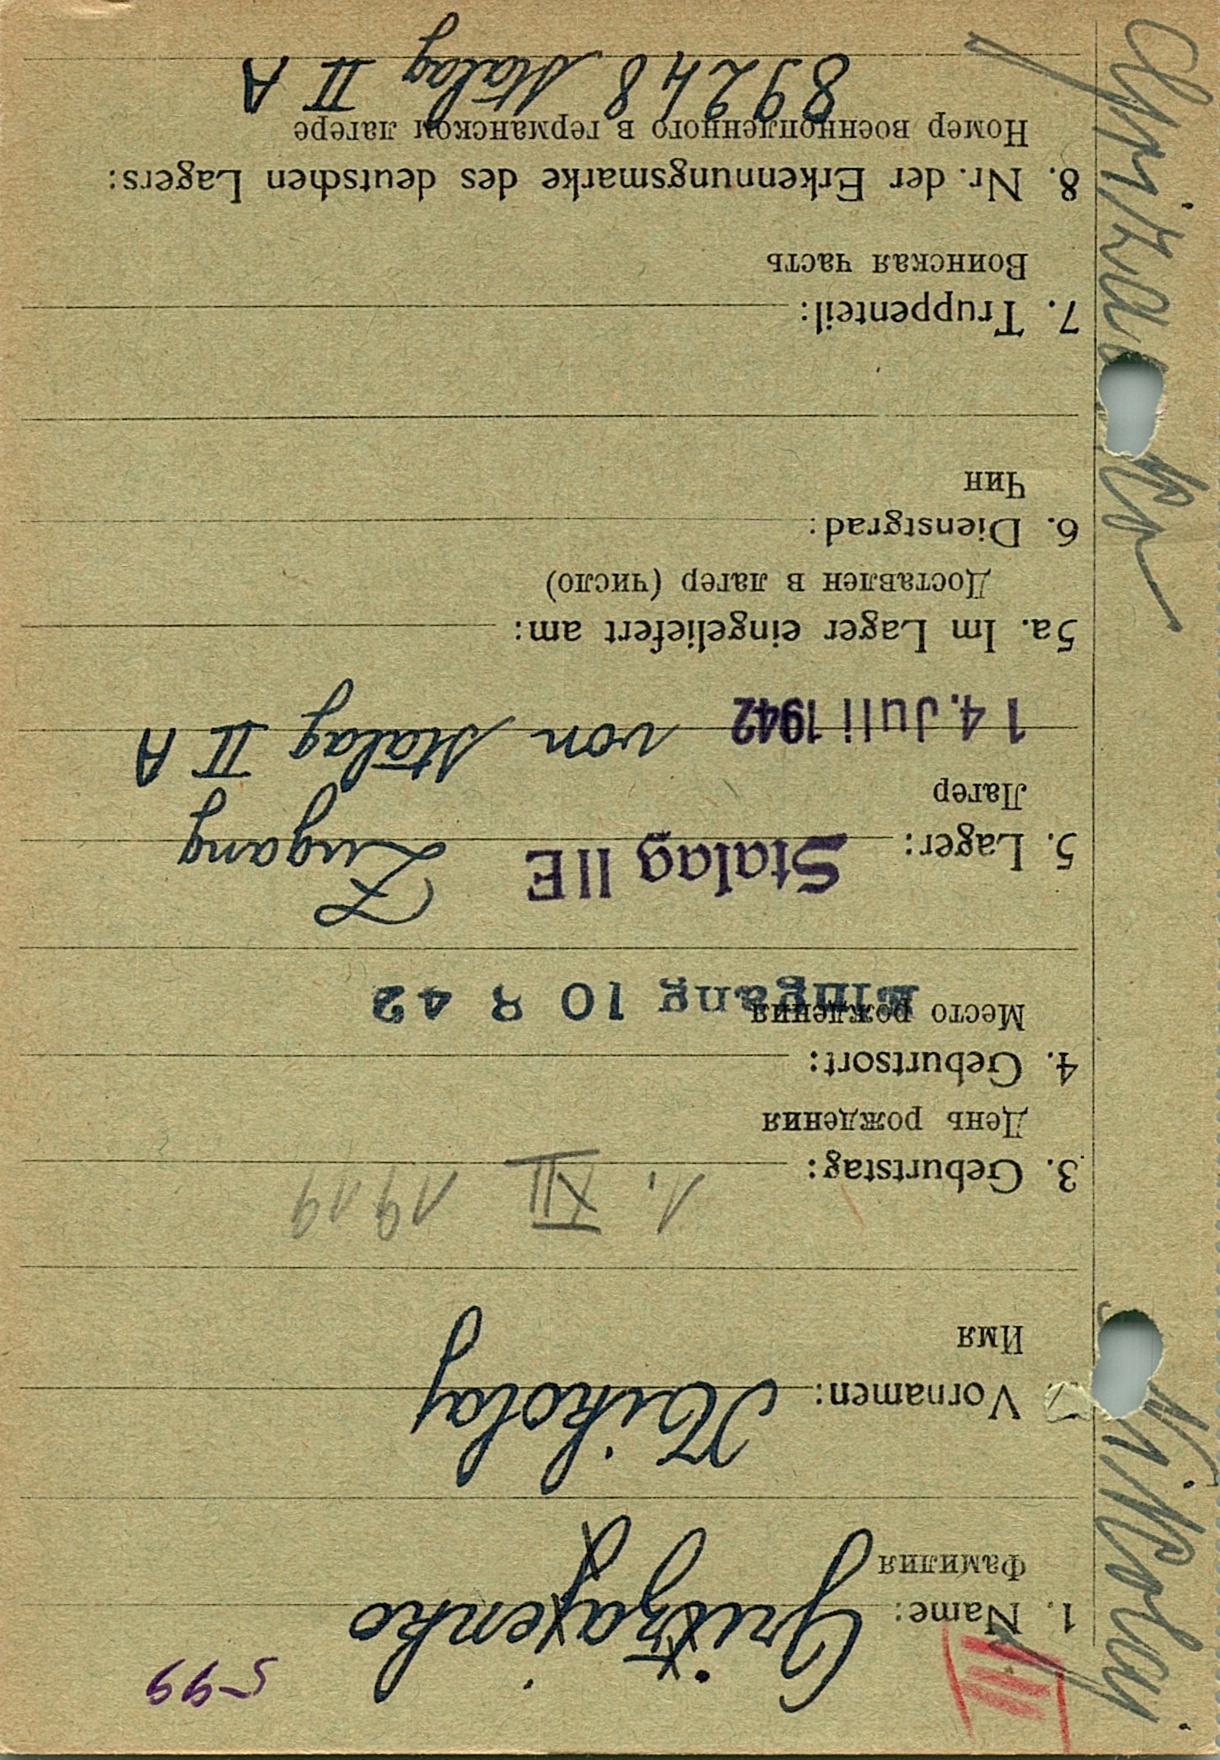 599
III
1. Name:
Фамилия
Vornamen: Nikolay
Имя
3. Geburtstag: 1. XII 1919
День рождения
4. Geburtsort:
Место рождения
Eingang 10 9 42
5. Lager: Stalag IIE Zugang
Лагер
14. Juli 1942 von Stalag II A
5a. Im Lager eingeliefert am:
Доставлен в лагер (число)
6. Dienstgrad:
Чин
7. Truppenteil:
Воинская часть
8. Nr. der Erkennungsmarke des deutschen Lagers:
Номер военнопленного в германском лагере
89248 Stalag II A
Nikolaj